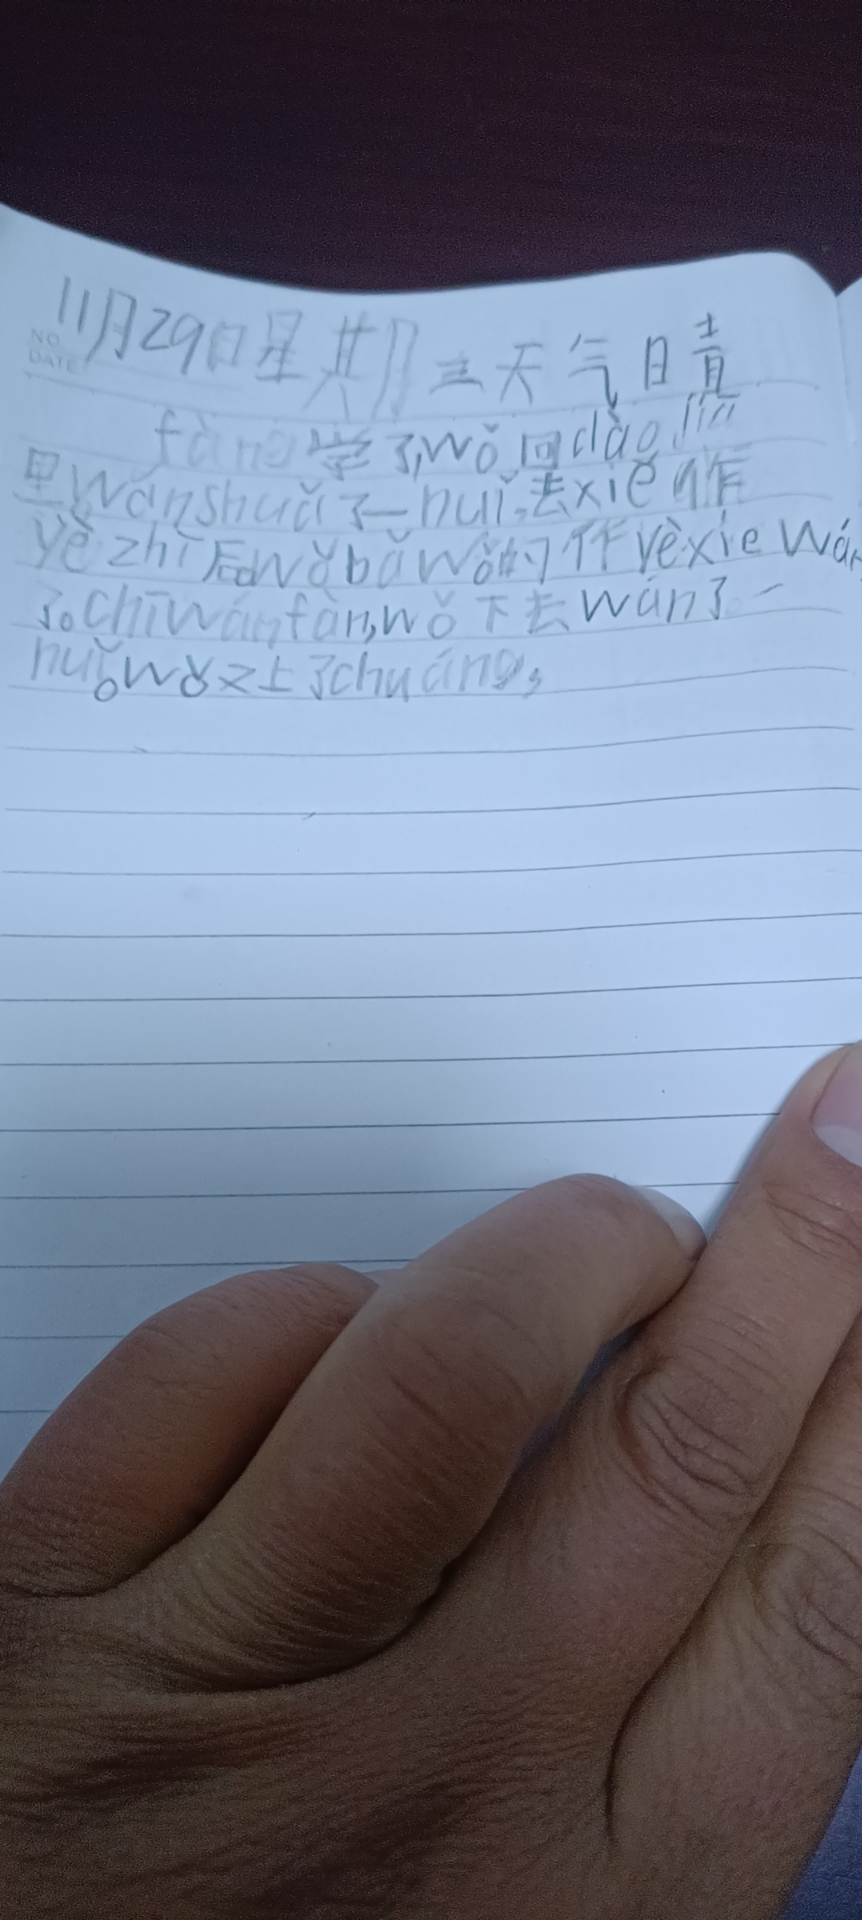 11月29日星期三天气日青
NO.
DATE
fàng学了,wǒ回dào jiā
里wánshuǎ了一huǐ,去xiě作
yè zhī后wǒbǎwǒ的作yèxiě wán
了。chīwánfàn,wǒ下去wán了一
huǐ。wǒ又上了chuáng,